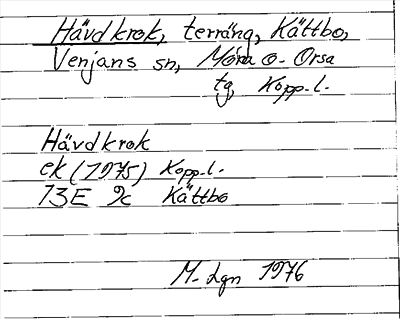 Hävdkrok, terräng, Kättbo,
Venjans sn, Mora o. Orsa
tg, Kopp. l.
Hävdkrok
ek (1975) Kopp. l.
13E 9c Kättbo
M. Lgn 1976